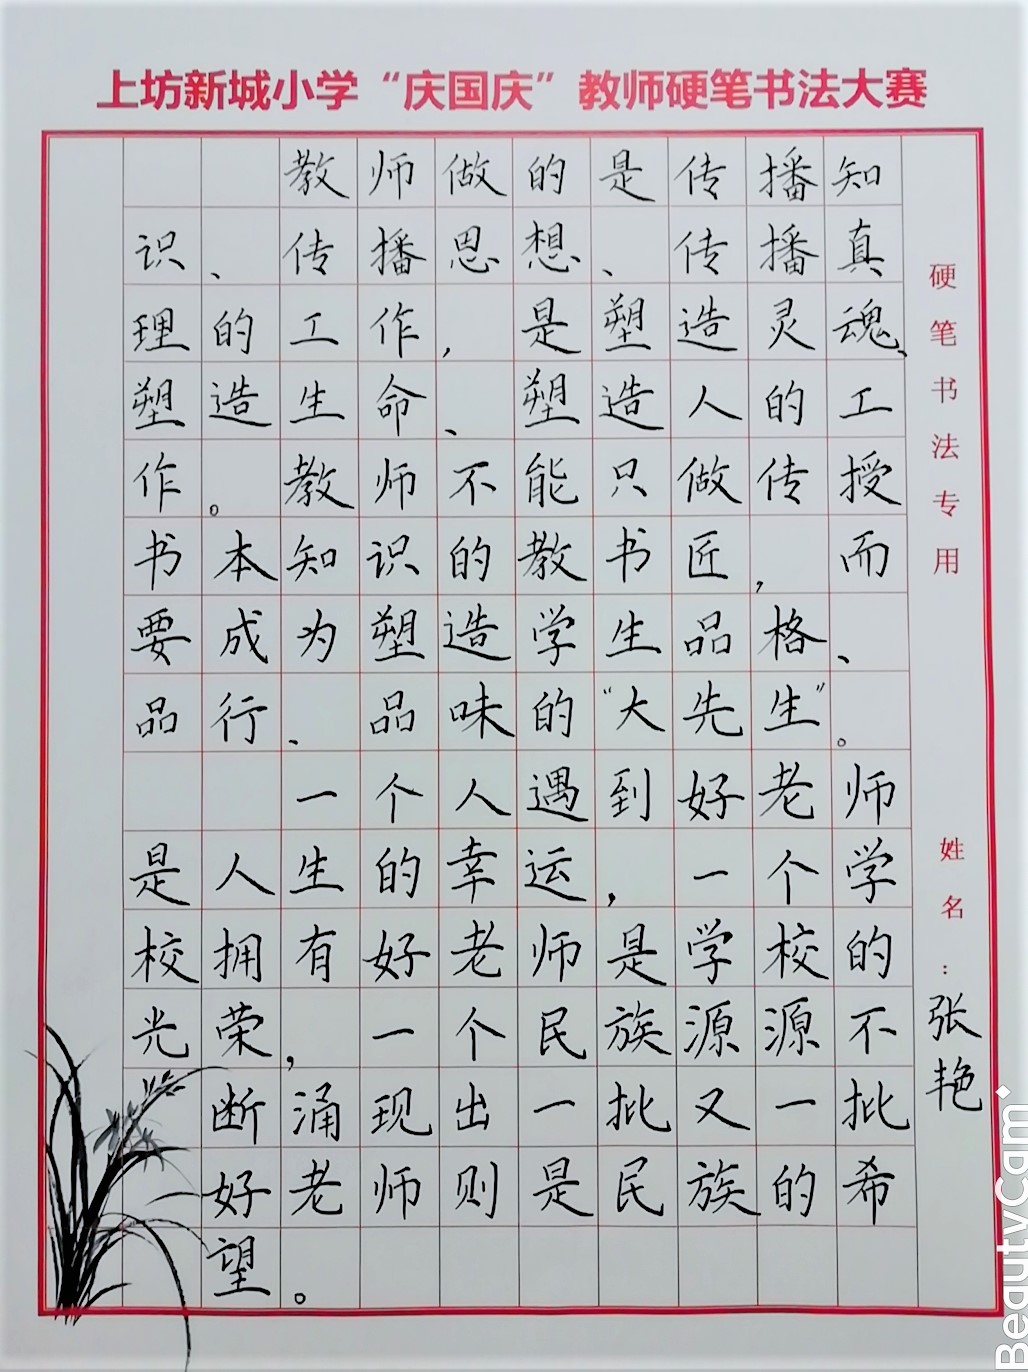 上坊新城小学“庆国庆”教师硬笔书法大赛
教师做的是传播知
识、传播思想、传播真
理的工作，是塑造灵魂、
塑造生命、塑造人的工
作。教师不能只做传授
书本知识的教书匠，而
要成为塑造学生品格、
品行、品味的“大先生”。
一个人遇到好老师
是人生的幸运，一个学
校拥有好老师是学校的
光荣，一个民族源源不
断涌现出一批又一批
好老师则是民族的希
望。
硬笔书法专用
姓名：张艳
BeautyCam